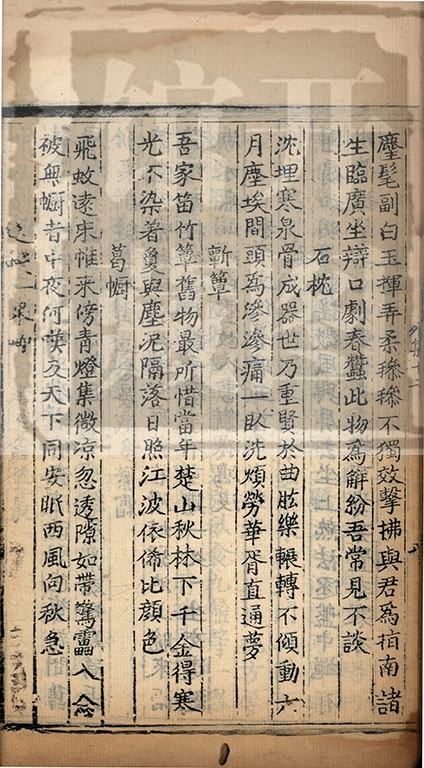 麈髦副白玉揮弄柔毿毿不獨效擊拂與君為指南諸
生臨廣坐辯口劇春蠶此物為解紛吾常見不談
石枕
沈埋寒泉骨成器世乃重賢於曲肱樂輾轉不傾動六
月塵埃間頭為滲滲痛一臥洗煩勞華胥直通夢
蘄簟
吾家笛竹簟舊物最所惜當年楚山秋林下千金得寒
光不染著夐與塵泥隔落日照江波依俙比顏色
葛幮
飛蚊遶床帷來傍青燈集微涼忽透隙如帶驚靁入念
彼無幮者中夜何嘆及天下同安眠西風向秋急